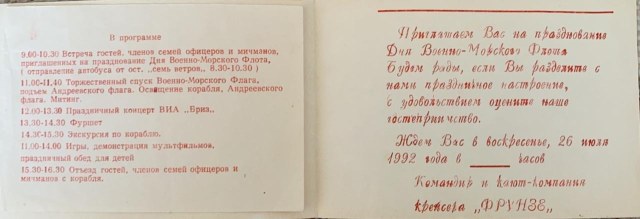 В программе
9.00-10.30 Встреча гостей, членов семей офицеров и мичманов,
приглашенных на празднование Дня Военно-Морского Флота,
( отправление автобуса от ост. ,,семь ветров,, 8.30-10.30 )
11.00-11.40 Торжественный спуск Военно-Морского Флага,
подъем Андреевского флага. Освящение корабля, Андреевского
флага. Митинг.
12.00-13.30 Праздничный концерт ВИА ,,Бриз,,
13.30-14.30 Фуршет
14.30-15.30 Экскурсия по кораблю.
11.00-14.00 Игры, демонстрация мультфильмов,
праздничный обед для детей
15.30-16.30 Отъезд гостей, членов семей офицеров и
мичманов с корабля.
Приглашаем Вас на празднование
Дня Военно-Морского Флота
Будем рады, если Вы разделите с
нами праздничное настроение,
с удовольствием оцените наше
гостеприимство.
Ждем Вас в воскресенье, 26 июля
1992 года в ______ часов
Командир и кают-компания
крейсера ,,ФРУНЗЕ"